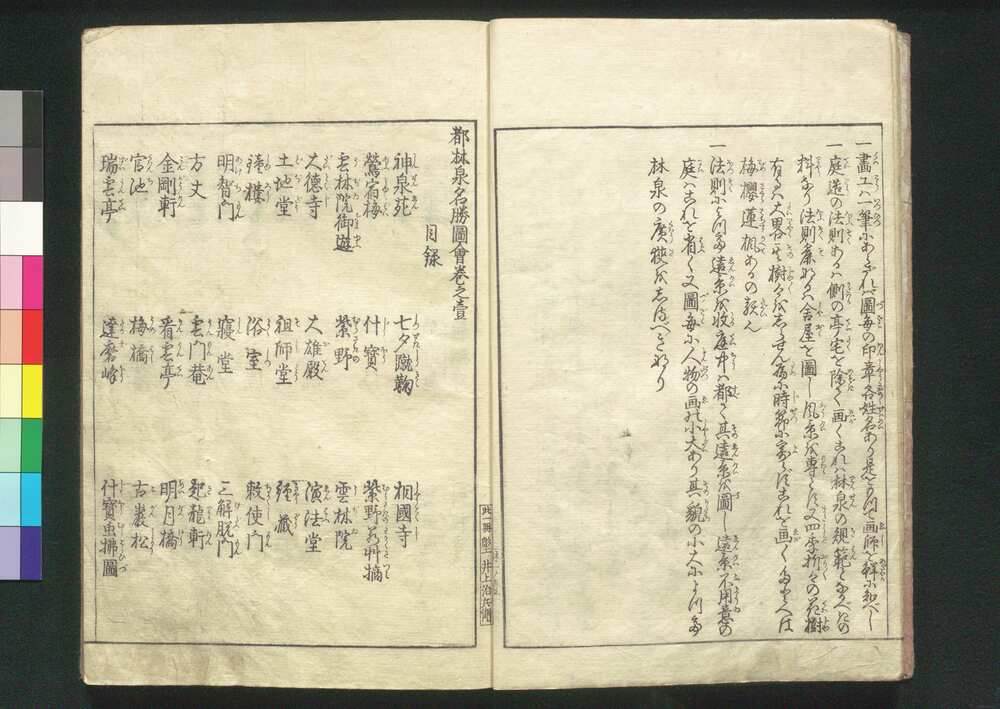 一畫工ハ一筆にあらざれバ圖毎の印章各姓名あり是を以て画師を
一庭造の法則あるハ側の亭宅を除く画くこれハ林泉の規範とすべきの
料なり法則麁なるハ舎屋を圖し風景を専とす又四季折々の花樹
有るハ大畧其樹々をしらせん為に時節に寄らずこれを画く
梅櫻蓮楓あるの類
一法則によつて遠景を收庭中ハ都て其遠景を圖し遠景不用意の
庭ハこれを省く又圖毎に人物の画に小大あり其貌の小大によつて
林泉の廣狹をしるべきなり
都林泉名勝圖會卷之壹
目録
神泉苑 七夕蹴鞠 相國寺
鶯宿梅 什寶 紫野若艸摘
雲林院御遊 紫野 雲林院
大德寺 大雄殿 演法堂
土地堂 祖師堂 經藏
鐘樓 浴室 敕使門
明智門 寢堂 三解脱門
方丈 雲門菴 起龍軒
金剛軒 看雲亭 明月橋
官池 梅橋 古巖松
瑞雲亭 達磨峰 什寶虫拂圖
此一冊彫工 井上治兵衛